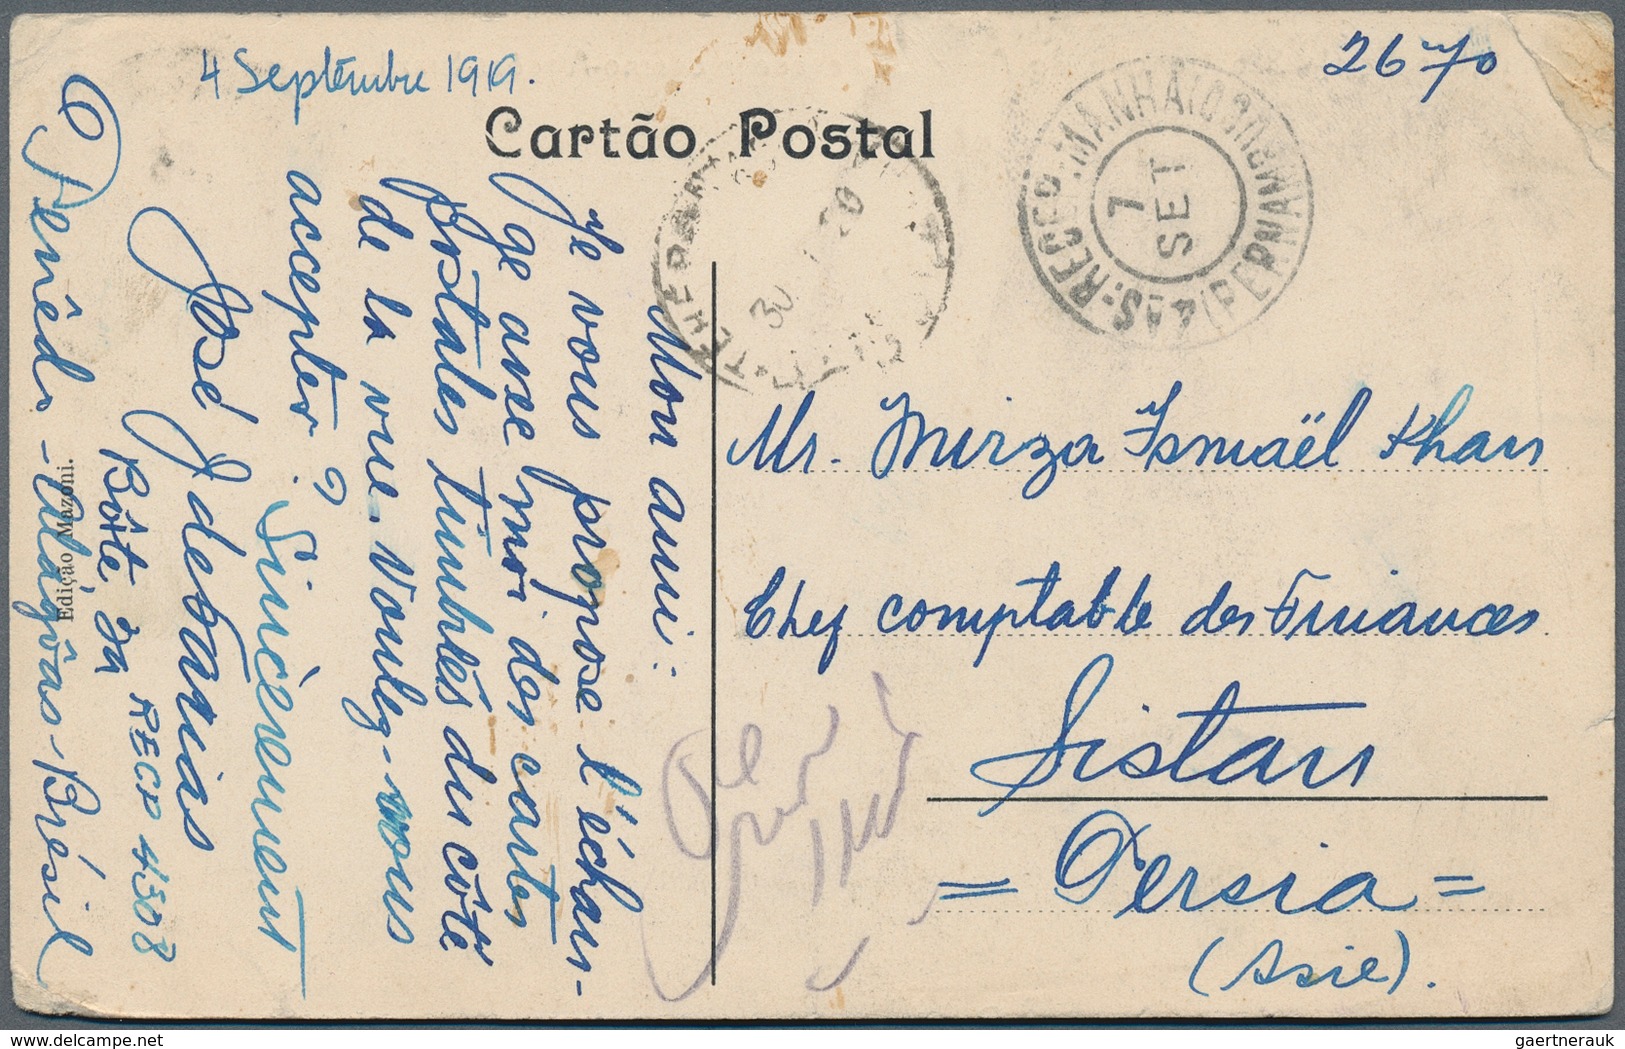 4 Septembre 1919.
2670
Cartão Postal
7
SET
(PERNAMBUCO)
TEHERAN
30
Mon ami:
Je vous propose l'échan-
ge avec moi des cartes
postales timbrés du côté
de la vue. Voulez-vous
accepter?
Sincèrement
José J de
Bôite 3n
RECP 4308
Penêdo - Alagôas - Brésil
Edição Mazoni.
Mr. Mirza Ismaël Khan
Chef comptable des Finances
Sistan
= Persia =
(Asie).
delcampe.net
gaertnerauk